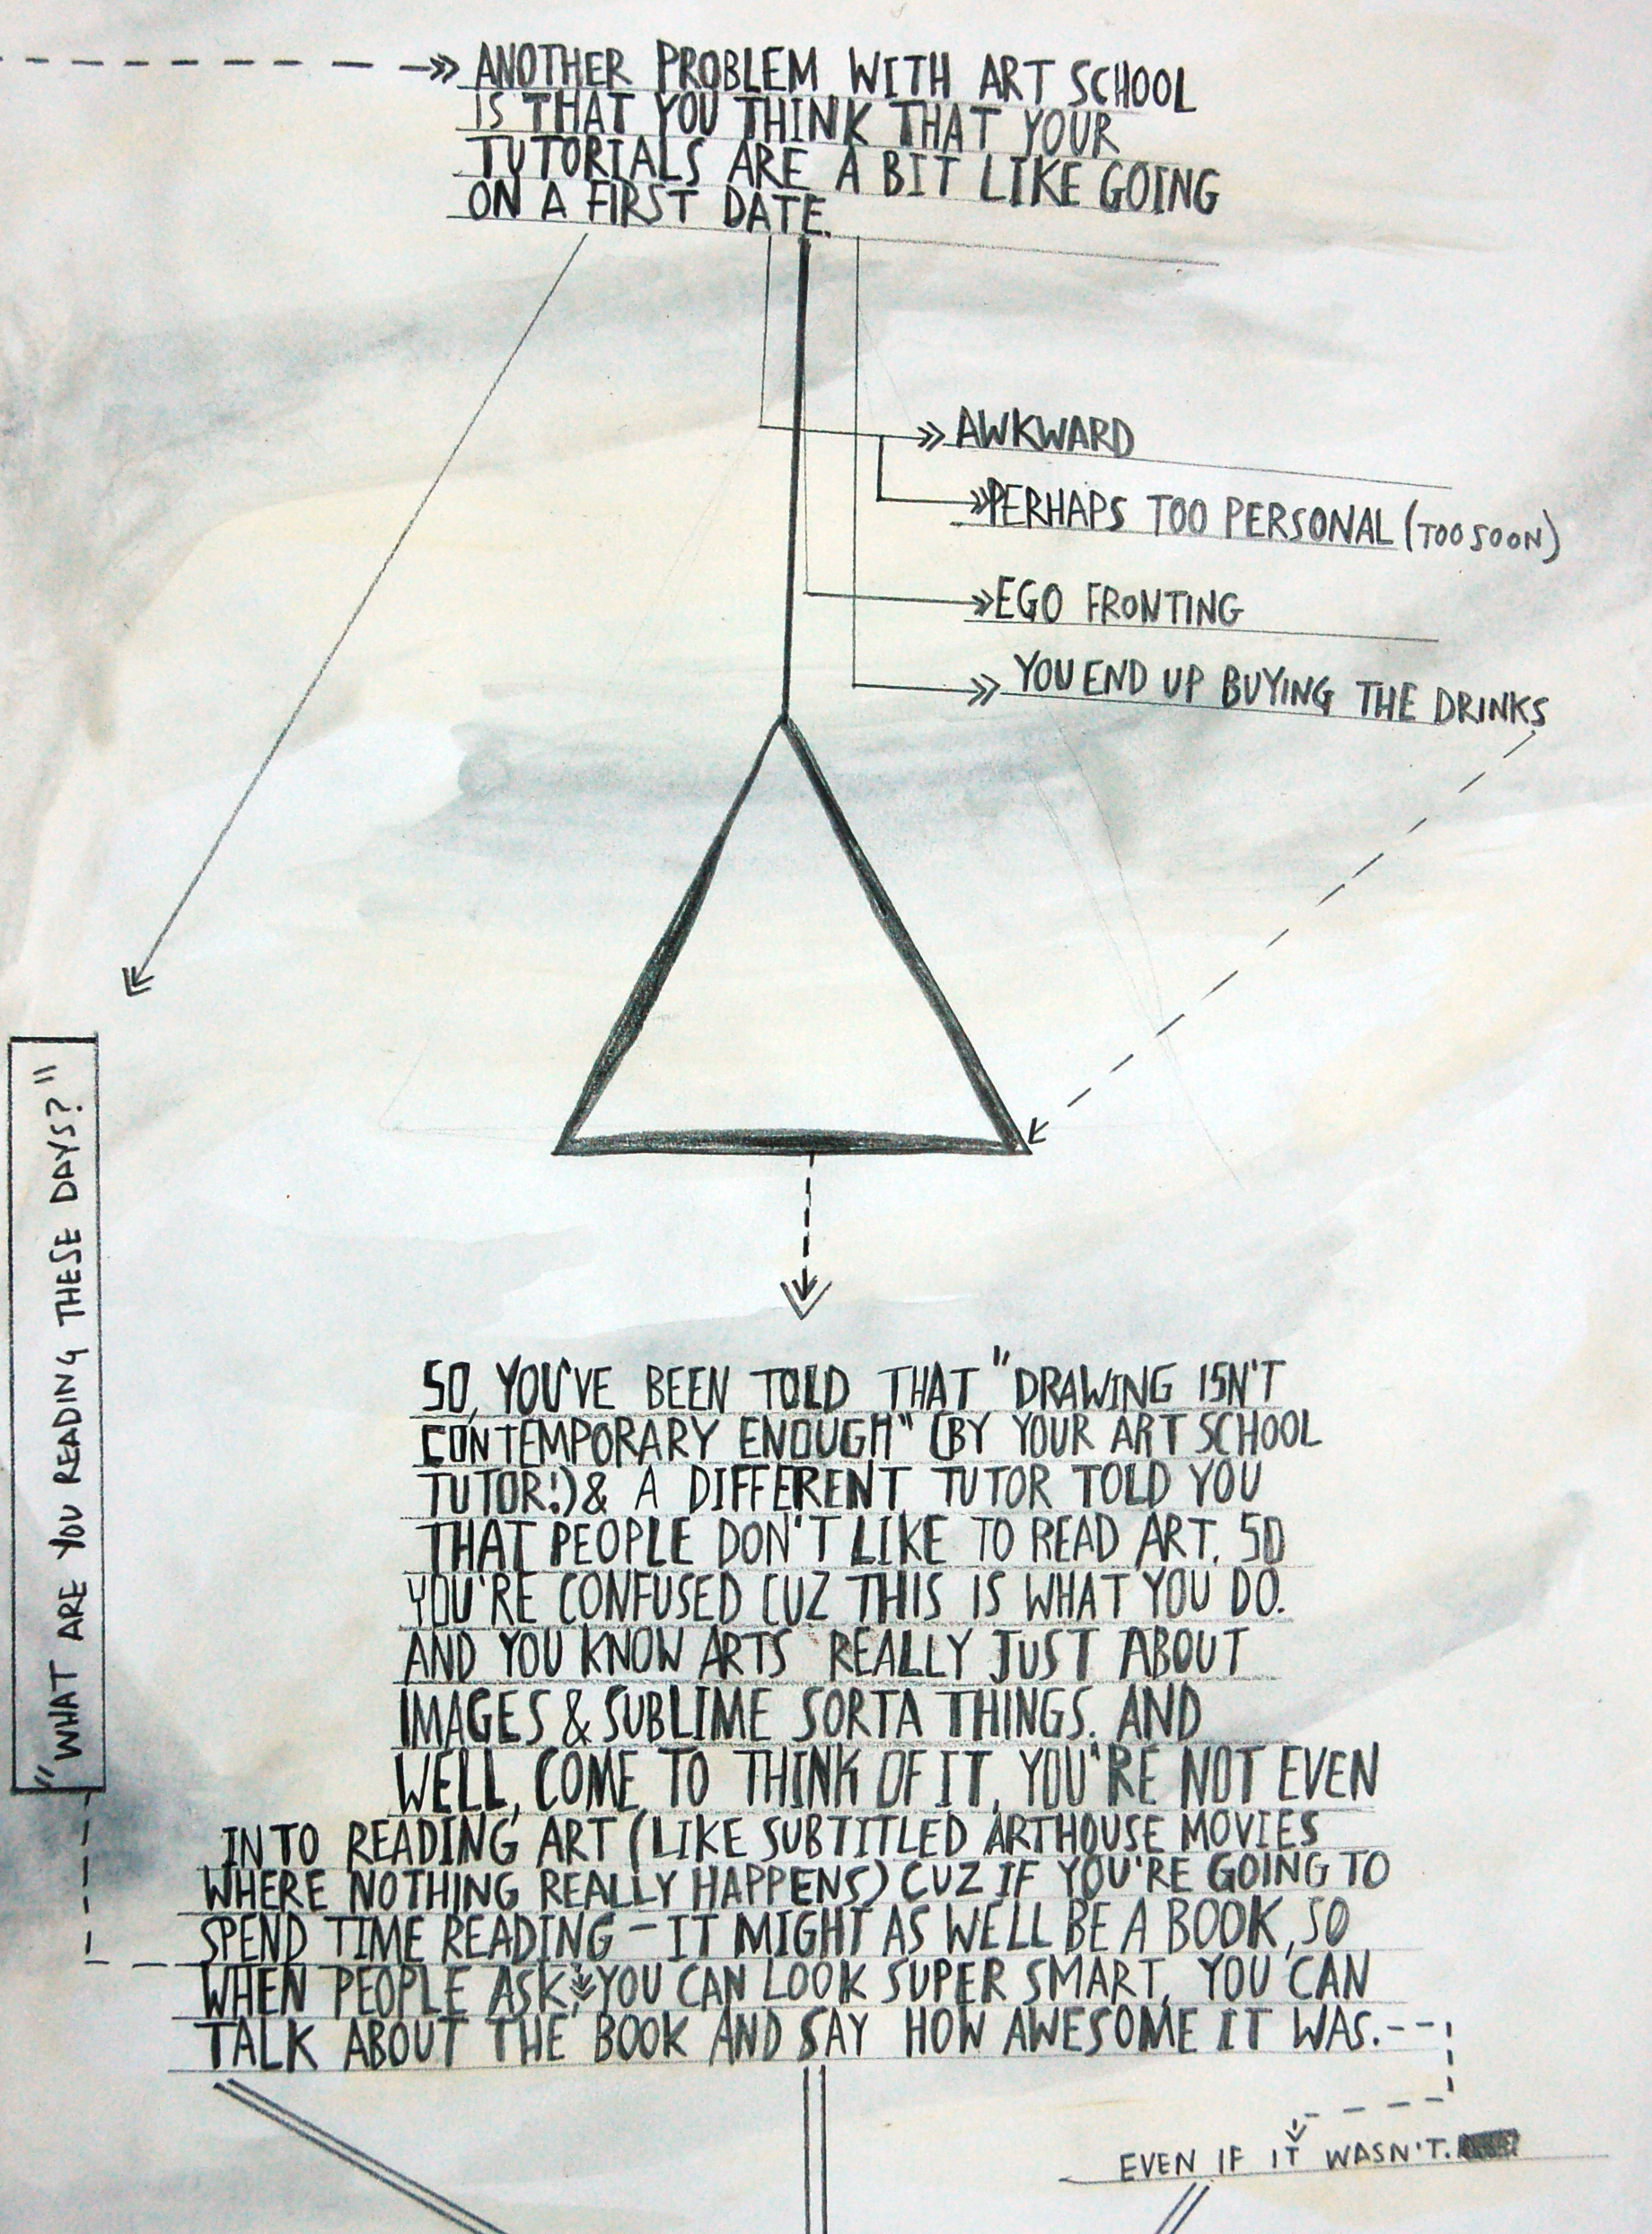 ANOTHER PROBLEM WITH ART SCHOOL
IS THAT YOU THINK THAT YOUR
TUTORIALS ARE A BIT LIKE GOING
ON A FIRST DATE.
AWKWARD
PERHAPS TOO PERSONAL (TOO SOON)
EGO FRONTING
YOU END UP BUYING THE DRINKS
"WHAT ARE YOU READING THESE DAYS?"
SO, YOU'VE BEEN TOLD THAT "DRAWING ISN'T
CONTEMPORARY ENOUGH" (BY YOUR ART SCHOOL
TUTOR!) & A DIFFERENT TUTOR TOLD YOU
THAT PEOPLE DON'T LIKE TO READ ART. SO
YOU'RE CONFUSED CUZ THIS IS WHAT YOU DO.
AND YOU KNOW ARTS REALLY JUST ABOUT
IMAGES & SUBLIME SORTA THINGS. AND
WELL, COME TO THINK OF IT, YOU'RE NOT EVEN
INTO READING ART (LIKE SUBTITLED ARTHOUSE MOVIES
WHERE NOTHING REALLY HAPPENS) CUZ IF YOU'RE GOING TO
SPEND TIME READING - IT MIGHT AS WELL BE A BOOK, SO
WHEN PEOPLE ASK, YOU CAN LOOK SUPER SMART, YOU CAN
TALK ABOUT THE BOOK AND SAY HOW AWESOME IT WAS.
EVEN IF IT WASN'T.